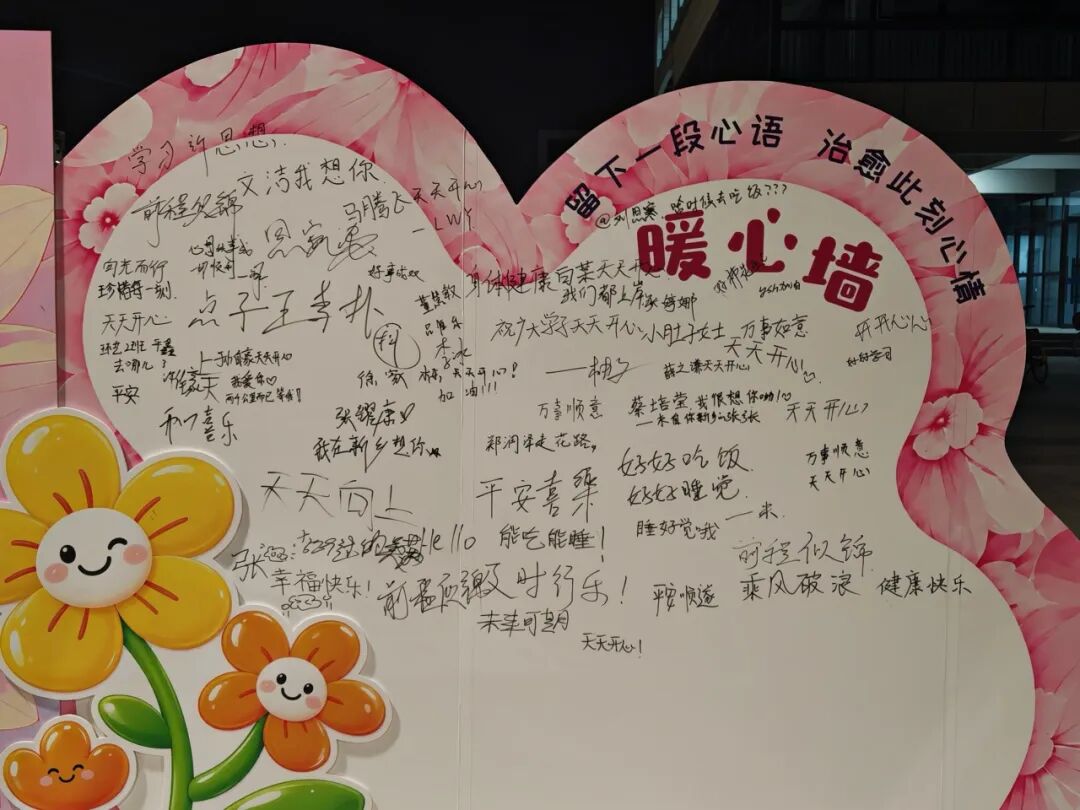 留下一段心语 治愈此刻心情
暖心墙
学习 许恩想
文洁我想你
前程似锦
马腾飞天天开心
—LWY
向光而行
珍惜每一刻
天天开心
去哪儿?
平安
点子王李朴
好事成双
李冰
徐家
天天开心!
加油!!!
上
天天开心
我爱你
和喜乐
我在新乡想你
身体健康
天天开心
我们都上岸
祝广大学子天天开心
小肚子女士
万事如意
天天开心
薛之谦天天开心
开开心心
@刘恩寒 啥时候去吃饭???
ysh加油
—柚子
万事顺意
郑润泽走花路
蔡培莹,我很想你呦!
天天开心
好好吃饭
好好睡觉
—米
睡好觉哦
万事顺意
天天开心
天天向上
平安喜乐
Hello
能吃能睡!
幸福快乐!
及时行乐!
未来可期
天天开心!
平安顺遂
前程似锦
乘风破浪
健康快乐